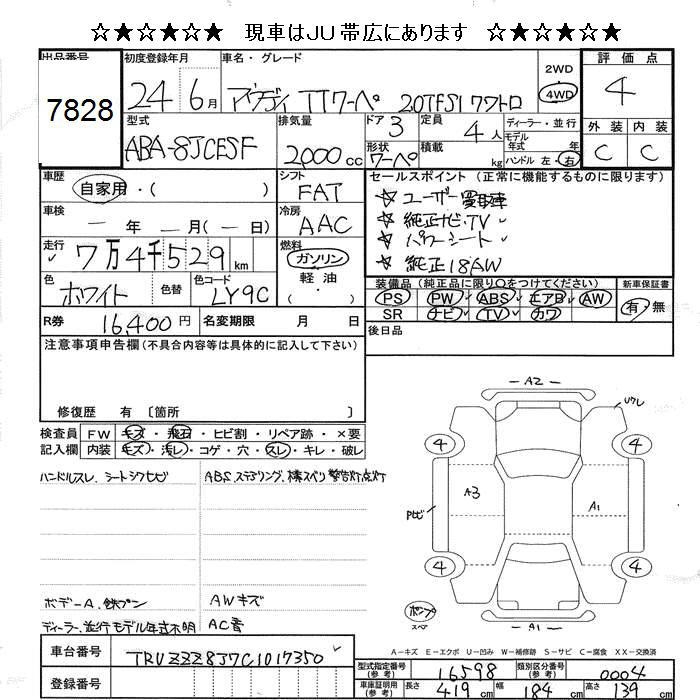 ☆★☆★☆★☆ 現車はJU帯広にあります ☆★☆★☆★☆
出品番号 初度登録年月 車名・グレード 2WD 評価点
7828 24 6月 アウディ TTクーペ 2.0TFSIクワトロ 4WD 4
型式 排気量 ドア 3 定員 4人 ディーラー・並行 外装 内装
モデル年式 年
ABA-8JCESF 2000cc 形状 クーペ 積載 kg ハンドル 左・右 C C
車歴 シフト セールスポイント(正常に機能するものに限ります)
自家用・( ) FAT ☆ ユーザー買取車
車検 冷房 ☆ 純正ナビ・TV
ー年 ー月(ー日) AAC ☆ パワーシート
走行 燃料 ☆ 純正18AW
7万4千529km ガソリン
軽油
・( )
色 色替 色コード 装備品(純正品に限り○をつけてください) 新車保証書
ホワイト LY9C PS PW ABS エアB AW 有・無
SR ナビ TV カワ
R券 16,400円 名変期限 月 日 後日品
注意事項申告欄(不具合内容等は具体的に記入して下さい)
修復歴 有〔箇所 〕
検査員 FW キズ・飛石・ヒビ割・リペア跡・×要
記入欄 内装 キズ・汚レ・コゲ・穴・スレ・キレ・破レ
ハンドルスレ、シートシワヒビ ABS、ステアリング、横スベリ警告灯点灯
ボデーA、鉄プン AWキズ
ディーラー、並行モデル年式不明 AC音
A2
ウワレ
4 4
A3 A1
Pヒビ
4 4
ポンプ
スペア
A1
A-キズ E-エクボ U-凹み W-補修跡 S-サビ C-腐食 XX-交換済
車台番号 TRUZZZ8J7C1017350
型式指定番号(参考) 16598 類別区分番号(参考) 0004
登録番号
車庫証明用(参考) 長さ 419cm 幅 184cm 高さ 139cm